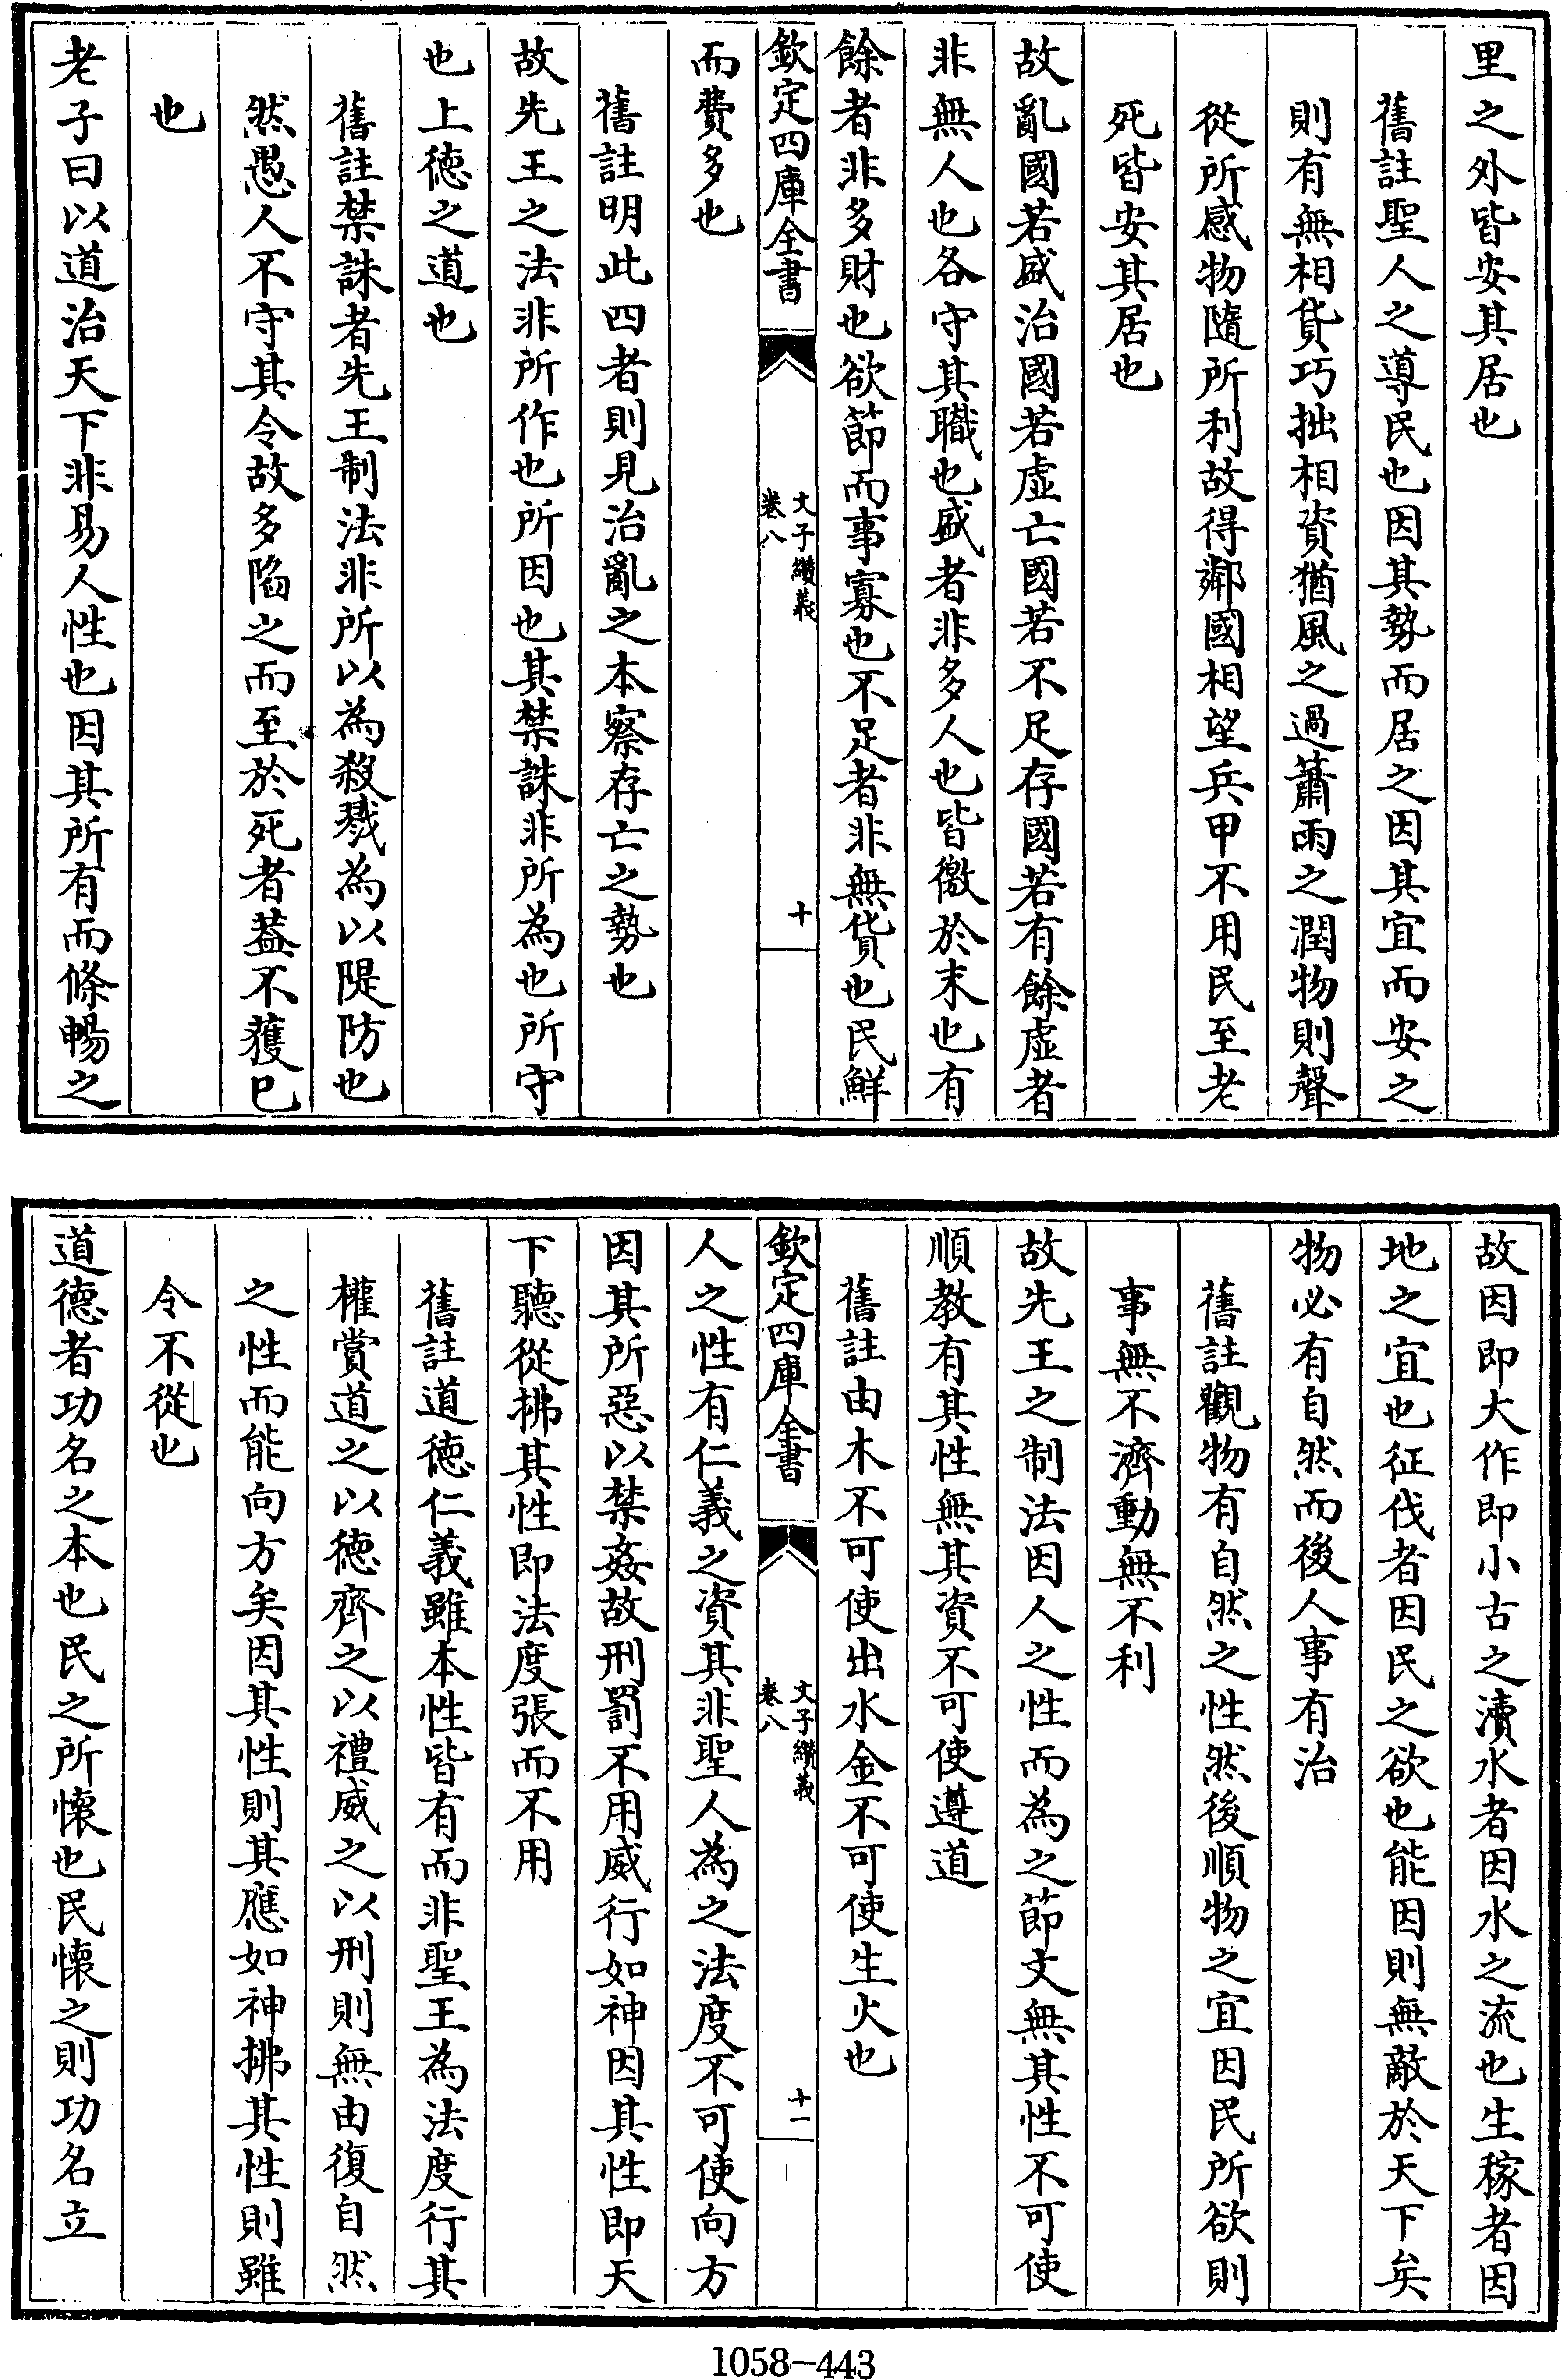 里之外皆安其居也
舊註聖人之導民也因其勢而居之因其宜而安之
則有無相貸巧拙相資猶風之過簫雨之潤物則聲
從所感物隨所利故得鄰國相望兵甲不用民至老
死皆安其居也
故亂國若盛治國若虛亡國若不足存國若有餘虛者
非無人也各守其職也盛者非多人也皆徼於末也有
餘者非多財也欲節而事寡也不足者非無貨也民鮮
欽定四庫全書
文子纘義
卷八
十
而費多也
舊註明此四者則見治亂之本察存亡之勢也
故先王之法非所作也所因也其禁誅非所為也所守
也上德之道也
舊註禁誅者先王制法非所以為殺戮為以隄防也
然愚人不守其令故多陷之而至於死者葢不獲已
也
老子曰以道治天下非易人性也因其所有而條暢之
故因即大作即小古之瀆水者因水之流也生稼者因
地之宜也征伐者因民之欲也能因則無敵於天下矣
物必有自然而後人事有治
舊註觀物有自然之性然後順物之宜因民所欲則
事無不濟動無不利
故先王之制法因人之性而為之節文無其性不可使
順教有其性無其資不可使遵道
舊註由木不可使出水金不可使生火也
欽定四庫全書
文子纘義
卷八
十一
人之性有仁義之資其非聖人為之法度不可使向方
因其所惡以禁姦故刑罰不用威行如神因其性即天
下聽從拂其性即法度張而不用
舊註道德仁義雖本性皆有而非聖王為法度行其
權賞道之以德齊之以禮威之以刑則無由復自然
之性而能向方矣因其性則其應如神拂其性則雖
令不從也
道德者功名之本也民之所懷也民懷之則功名立
1058-443